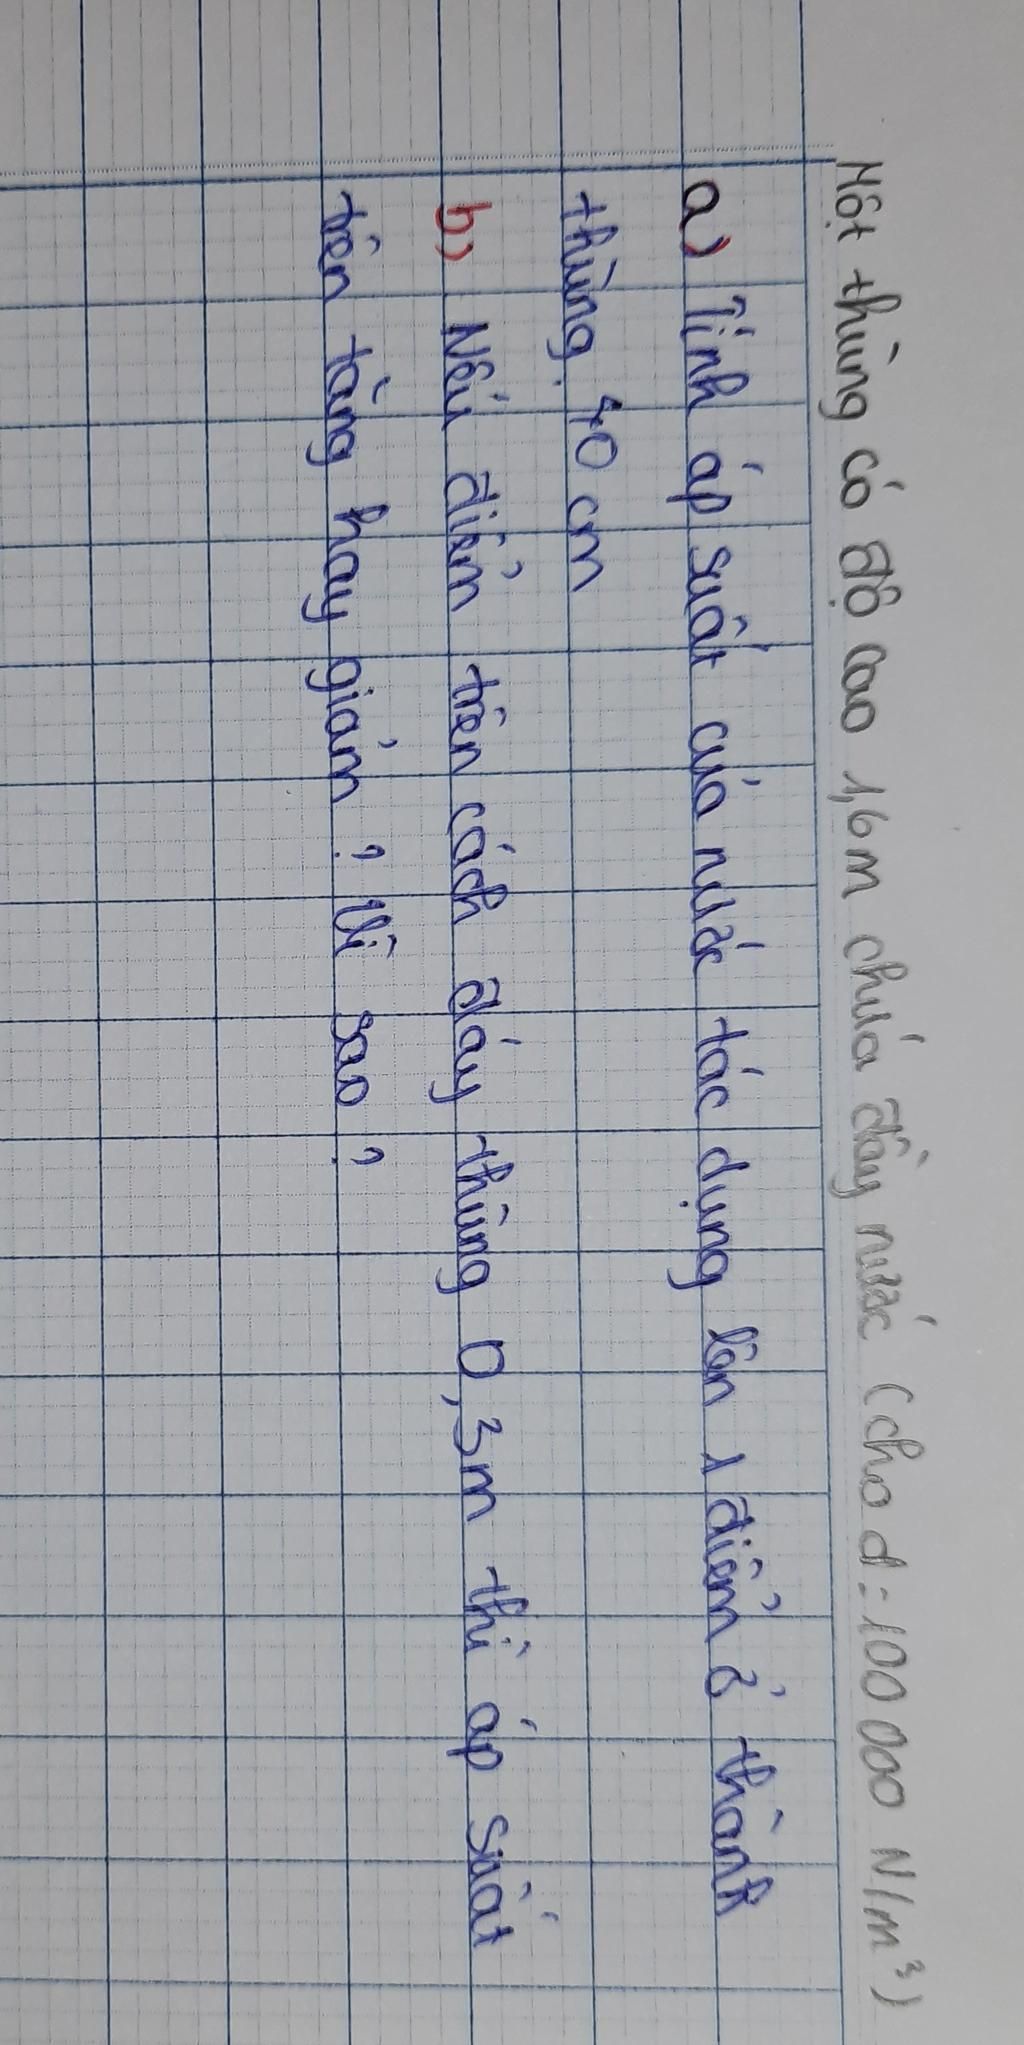 Một thùng có độ cao 1,6m chứa đầy nước (cho d = 100 000 N/m³)
a) Tính áp suất của nước tác dụng lên 1 điểm ở thành
thùng. 40 cm
b) Nếu điểm trên cách đáy thùng 0,3m thì áp suất
trên tăng hay giảm? Vì sao?